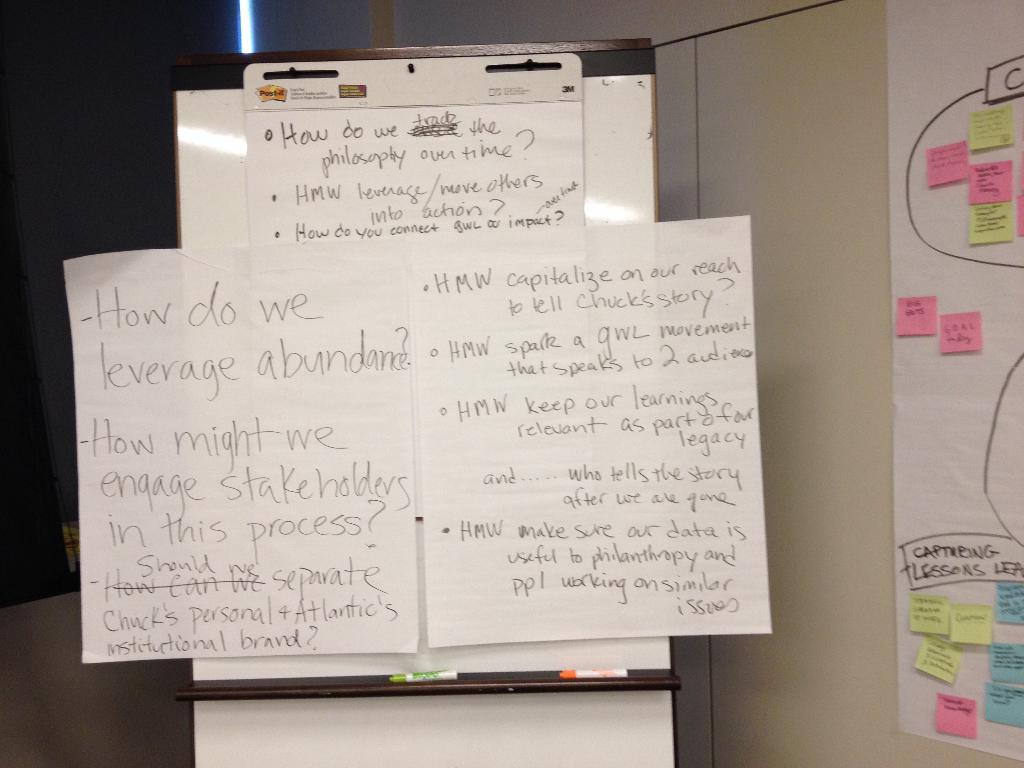 Post-it
3M
• How do we track the
philosophy over time?
• HMW leverage/move others
into action?
• How do you connect GWL w impact?
- How do we
leverage abundance?
- How might we
engage stakeholders
in this process?
Should we
- How can we separate
Chuck's personal + Atlantic's
institutional brand?
• HMW capitalize on our reach
to tell Chuck's story?
• HMW spark a GWL movement
that speaks to 2 audience
• HMW keep our learnings
relevant as part of our
legacy
and ..... who tells the story
after we are gone
• HMW make sure our data is
useful to philanthropy and
ppl working on similar
issues
C
BIG
BETS
GOAL
CAPTURING
LESSONS LEA